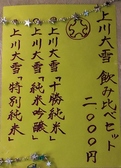 上川大雪 飲み比べセット
二〇〇〇円
上川大雪「十勝純米」
上川大雪「純米吟醸」
上川大雪「特別純米」